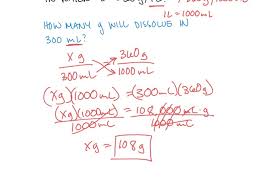 1L = 1000mL
HOW MANY g WILL DISSOLVE IN
300 mL?
x g / 300 mL = 360 g / 1000 mL
(x g)(1000mL) = (300mL)(360g)
(x g)(1000mL) / 1000mL = 108,000 mL·g / 1000mL
x g = 108 g